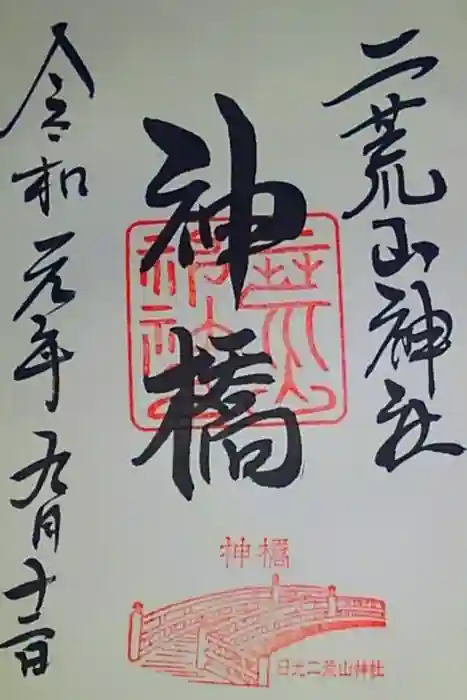 二荒山神社
神橋
令和元年九月十二日
二荒山神社
神橋
日光二荒山神社